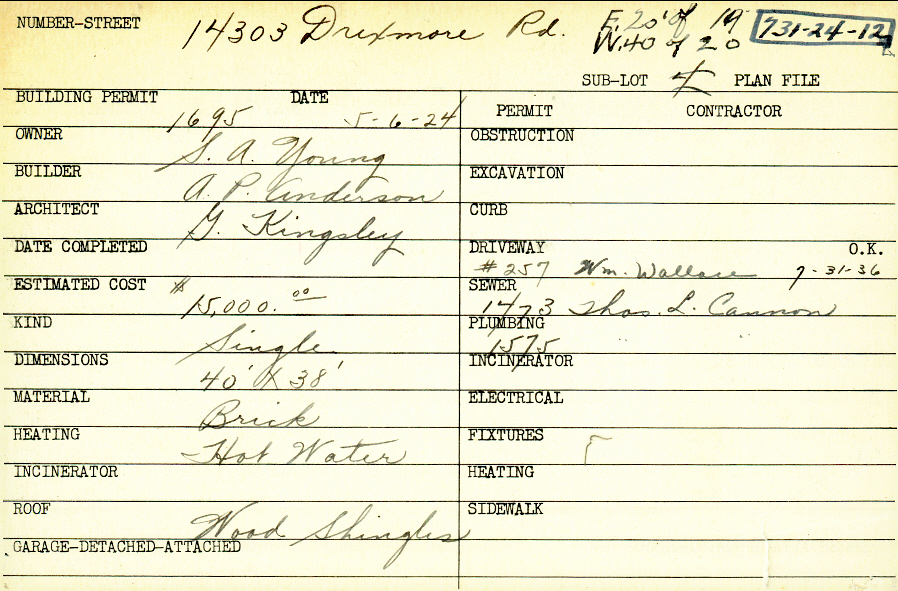 NUMBER-STREET 14303 Drexmore Rd. E. 20' of 19 731-24-12
W. 40 of 20
SUB-LOT PLAN FILE
BUILDING PERMIT DATE
1695 5-6-24
OWNER
S. A. Young
BUILDER
A. P. Anderson
ARCHITECT
G. Kingsley
DATE COMPLETED
ESTIMATED COST
$15,000.00
KIND
Single
DIMENSIONS
40' X 38'
MATERIAL
Brick
HEATING
Hot Water
INCINERATOR
ROOF
Wood Shingles
GARAGE-DETACHED-ATTACHED
PERMIT CONTRACTOR
OBSTRUCTION
EXCAVATION
CURB
DRIVEWAY O.K.
#257 Wm. Wallace 7-31-36
SEWER
1473 Thos. L. Cannon
PLUMBING
1575 " "
INCINERATOR
ELECTRICAL
FIXTURES
HEATING
SIDEWALK